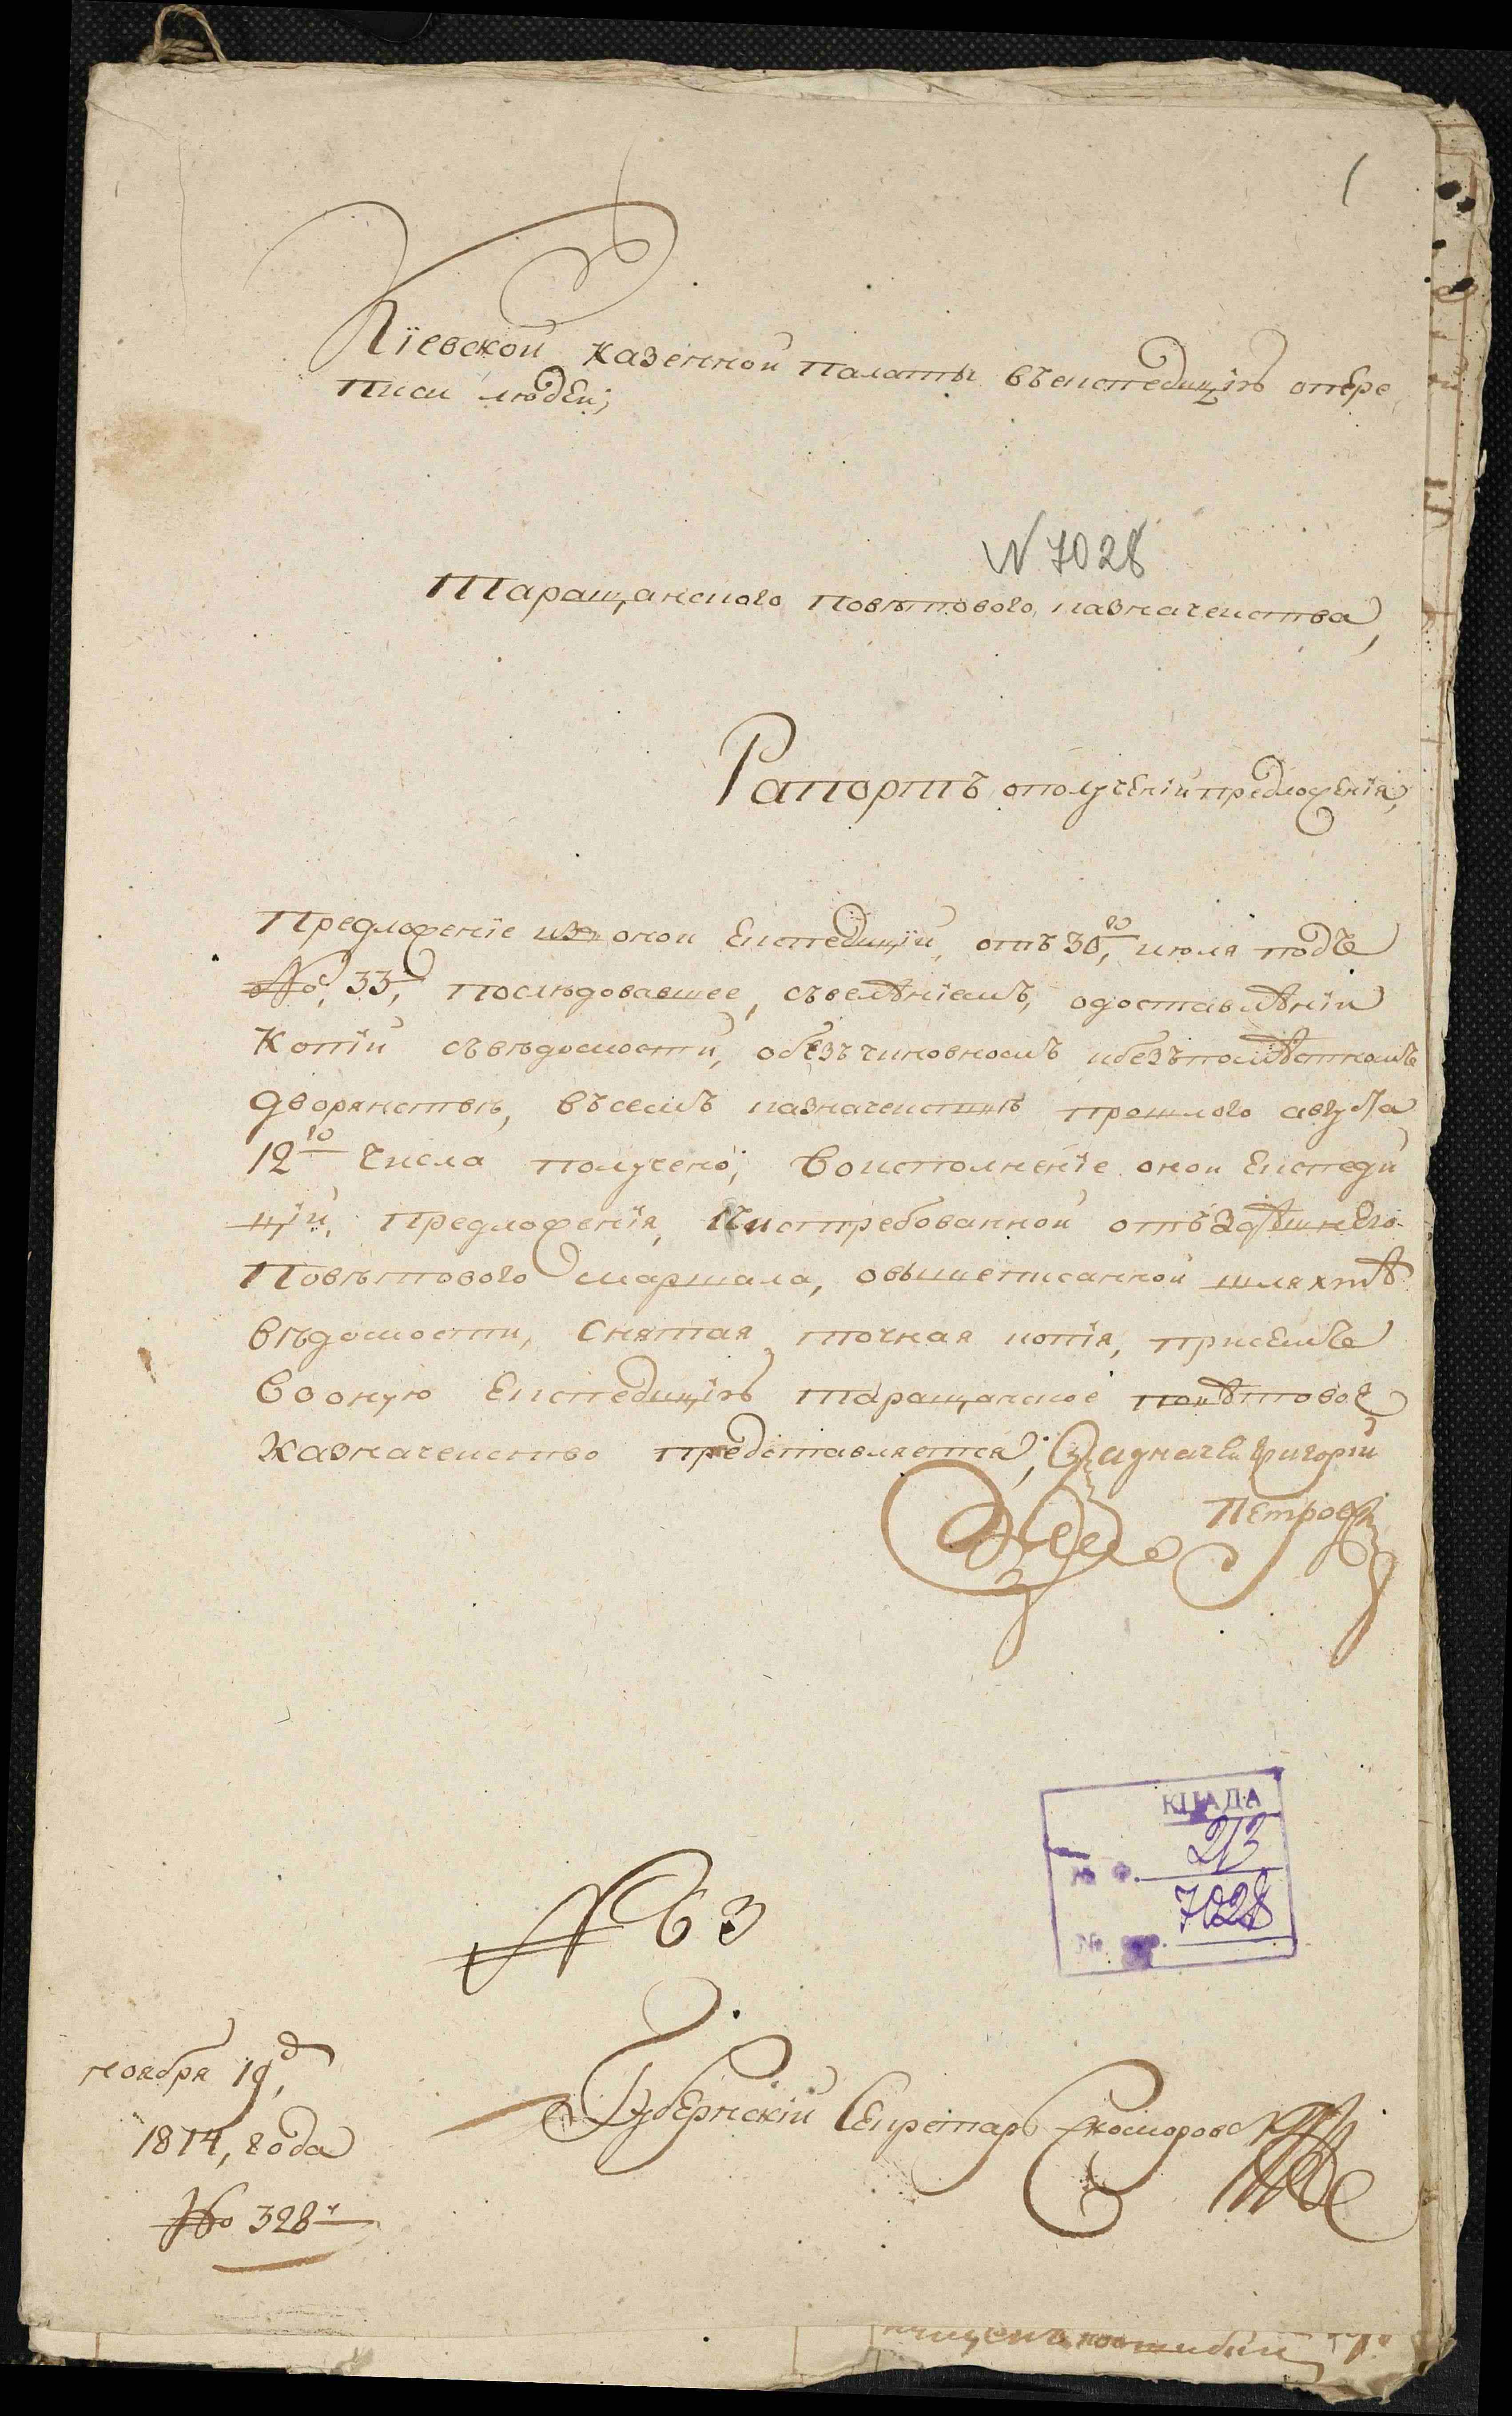 1
Кіевской казенной палаты въекспедицію опере
писи людей;
N 7028
Таращанского повѣтового казначейства,
Рапортъ ополученіи предложенія,
Предложеніе изъ оной Експедиціи, отъ 30,го июля подъ
№, 33, последовавшее, съвелѣніемъ, одоставлѣніи
Копіи съвѣдомости, обезъчиновномъ ибезъпомѣстномъ
дворянствѣ, въсемъ казначействѣ прошлого августа
12го числа получено; Воисполненіе оной Експеди
ціи, предложенія, Систребованной отъ здѣшнего
Повѣтового маршала, овышеписанной шляхтѣ
вѣдомости, снятая точная копія, присемъ
Вооную Експедицію таращанское повѣтовое
казначейство представляется; Казначей Григорій
Петровскій
КЦАДА
№ Ф. 2/3
7028
№
№ 63
ноября 19д,
1814, года
Губернскій Секретарь
№ 328й